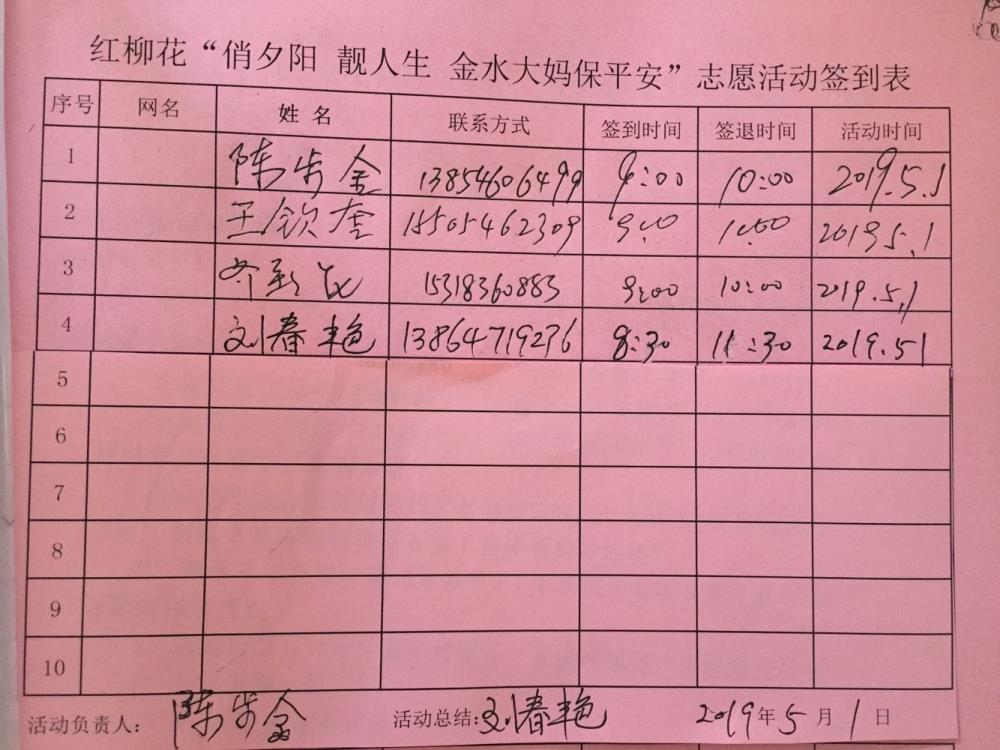 红柳花“俏夕阳 靓人生 金水大妈保平安”志愿活动签到表
序号 网名 姓名 联系方式 签到时间 签退时间 活动时间
1 陈步金 13854606499 9:00 10:00 2019.5.1
2 王钦奎 15505462309 9:00 2019.5.1
3 15318360883 9:00 10:00 2019.5.1
4 刘春艳 13864719236 8:30 11:30 2019.5.1
5
6
7
8
9
10
活动负责人: 陈步金 活动总结: 刘春艳 2019年5月1日